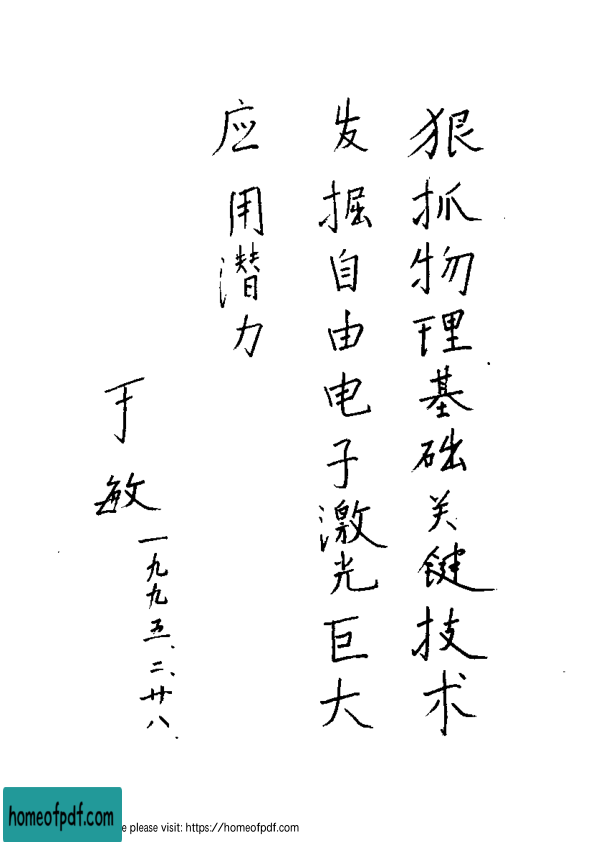 狠抓物理基础关键技术
发掘自由电子激光巨大
应用潜力
于敏
一九九五、二、廿八、
homeofpdf.com
e please visit: https://homeofpdf.com